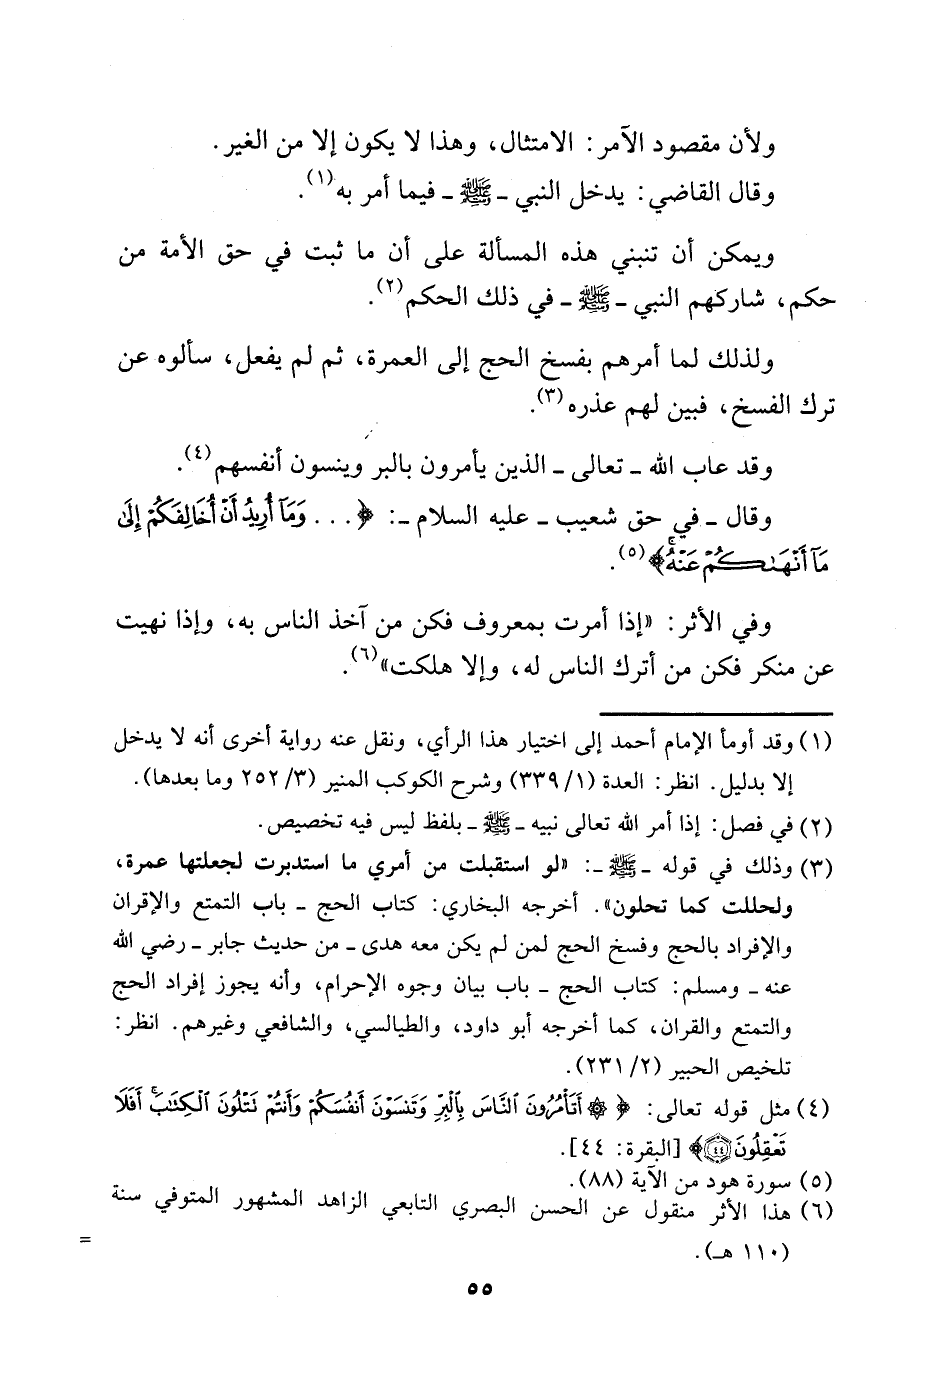 ولأن مقصود الآمر: الامتثال، وهذا لا يكون إلا من الغير.
وقال القاضي: يدخل النبي - ﷺ - فيما أمر به(١).
ويمكن أن تنبني هذه المسألة على أن ما ثبت في حق الأمة من
حكم، شاركهم النبي - ﷺ - في ذلك الحكم(٢).
ولذلك لما أمرهم بفسخ الحج إلى العمرة، ثم لم يفعل، سألوه عن
ترك الفسخ، فبين لهم عذره(٣).
وقد عاب الله - تعالى - الذين يأمرون بالبر وينسون أنفسهم(٤).
وقال - في حق شعيب - عليه السلام -: ﴿... وَمَآ أُرِيدُ أَنْ أُخَالِفَكُمْ إِلَىٰ
مَآ أَنْهَىٰكُمْ عَنْهُ ۚ﴾(٥).
وفي الأثر: «إذا أمرت بمعروف فكن من آخذ الناس به، وإذا نهيت
عن منكر فكن من أترك الناس له، وإلا هلكت»(٦).
(١) وقد أومأ الإمام أحمد إلى اختيار هذا الرأي، ونقل عنه رواية أخرى أنه لا يدخل
إلا بدليل. انظر: العدة (١/ ٣٣٩) وشرح الكوكب المنير (٣/ ٢٥٢ وما بعدها).
(٢) في فصل: إذا أمر الله تعالى نبيه - ﷺ - بلفظ ليس فيه تخصيص.
(٣) وذلك في قوله - ﷺ -: «لو استقبلت من أمري ما استدبرت لجعلتها عمرة،
ولحللت كما تحلون». أخرجه البخاري: كتاب الحج - باب التمتع والإقران
والإفراد بالحج وفسخ الحج لمن لم يكن معه هدى - من حديث جابر - رضي الله
عنه - ومسلم: كتاب الحج - باب بيان وجوه الإحرام، وأنه يجوز إفراد الحج
والتمتع والقران، كما أخرجه أبو داود، والطيالسي، والشافعي وغيرهم. انظر:
تلخيص الحبير (٢/ ٢٣١).
(٤) مثل قوله تعالى: ﴿ ۞ أَتَأْمُرُونَ ٱلنَّاسَ بِٱلْبِرِّ وَتَنسَوْنَ أَنفُسَكُمْ وَأَنتُمْ تَتْلُونَ ٱلْكِتَٰبَ ۚ أَفَلَا
تَعْقِلُونَ ٤٤﴾ [البقرة: ٤٤].
(٥) سورة هود من الآية (٨٨).
(٦) هذا الأثر منقول عن الحسن البصري التابعي الزاهد المشهور المتوفي سنة
(١١٠ هـ).
=
٥٥